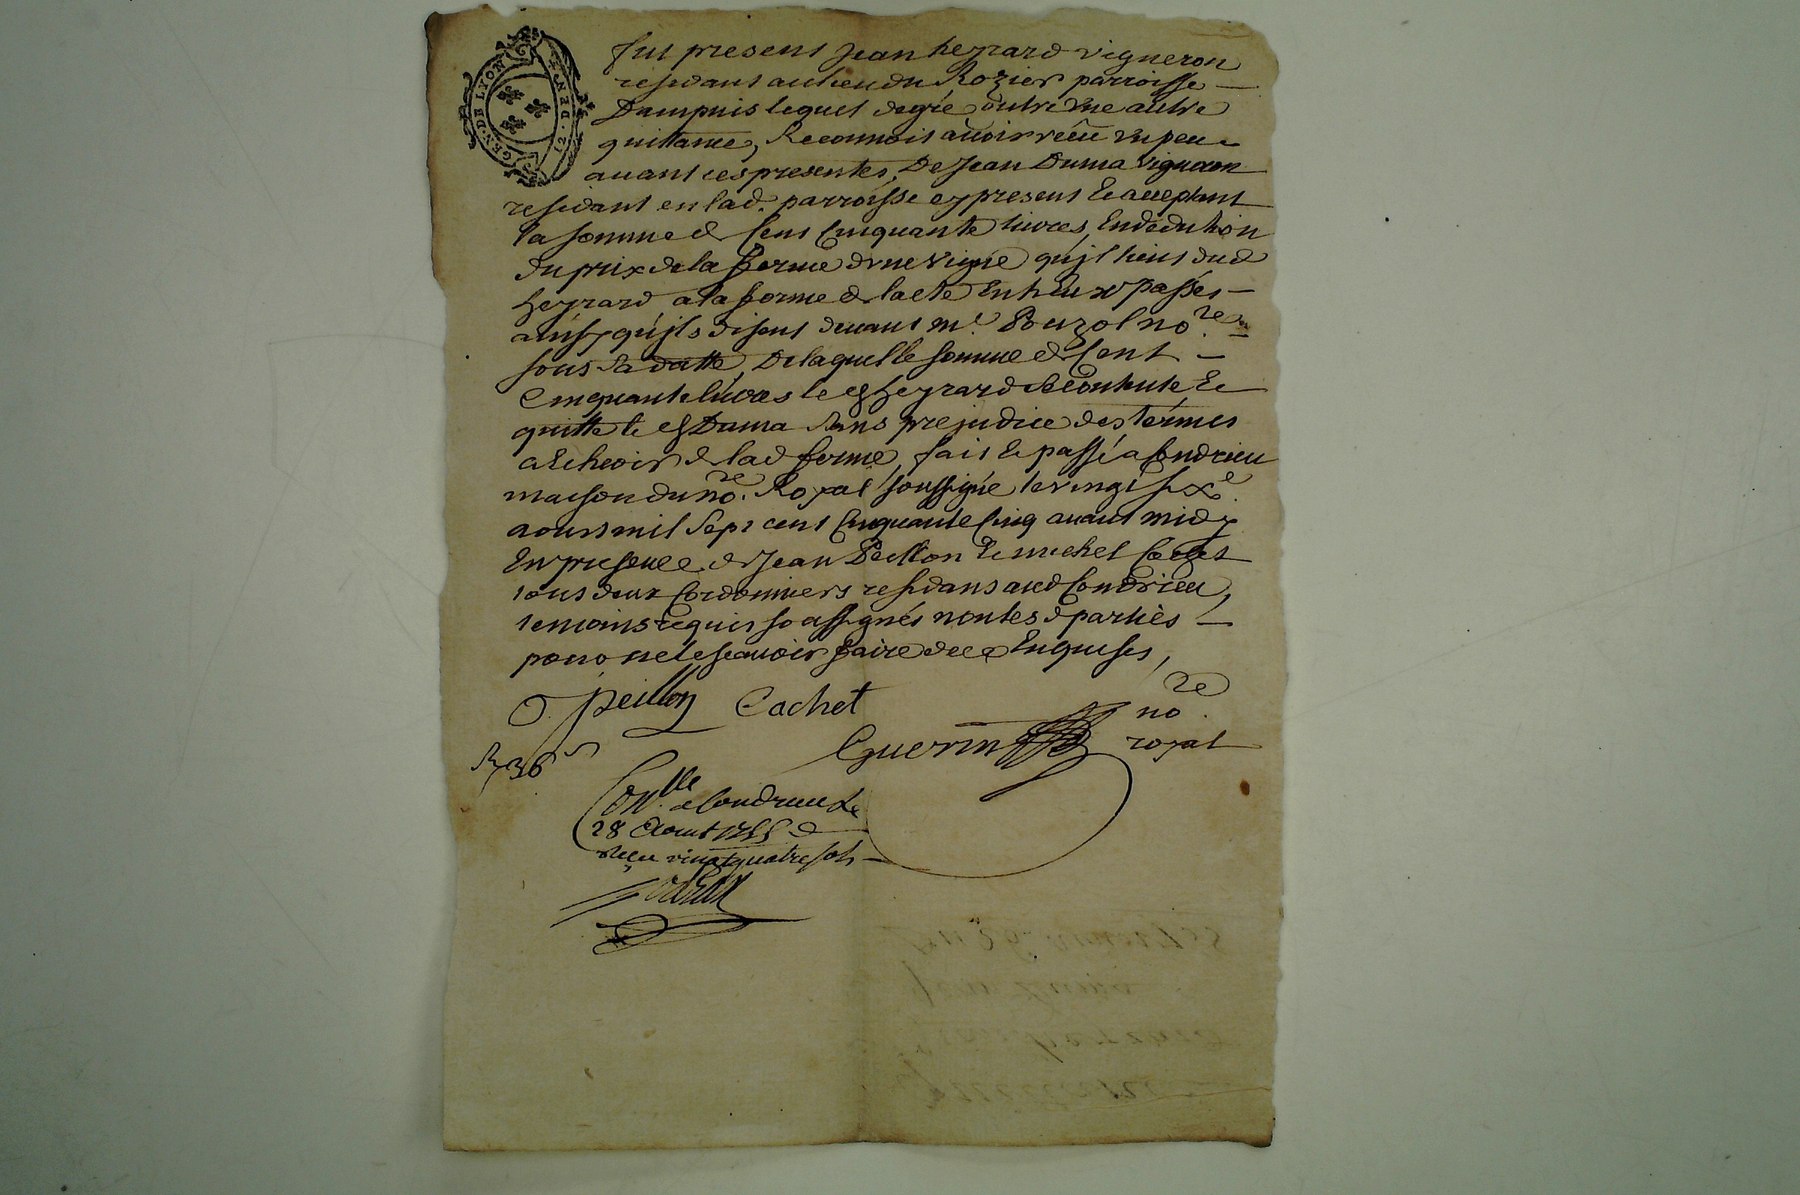 GEN. DE LYON
12. DEN.
fut present Jean heyrard vigneron
residant au lieu du Rozier parroisse
Dampuis lequel degré outre une autre
quittance, Reconnoit avoir recu un peu
avant ces presentes, De Jean Duma vigneron
residant en lad. parroisse cy present Et acceptant
la somme de Cent Cinquante livres, En deduction
du prix de la ferme dune vigne qu'jl tient dud
heyrard a la forme de lacte Entr'eux passés
ainsy qu'jls disent devant me. Pouzol no.re
sous sa datte, De laquelle somme de Cent
Cinquante livres led heyrard se contente Et
quitte led Duma sans prejudice des termes
a Echeoir de lad ferme, fait Et passé a Condrieu
maison du no.re Royal soussigné le vingt six.e
aoust mil sept cent Cinquante Cinq avant midy
En presence de Jean Peillon Et michel Cachet
tous deux Cordonniers residans aud Condrieu,
temoins requis soussignés non lesd parties
pour ne le scavoir faire de ce Enquises,
J. peillon Cachet
no.re
Guerin royal
R 36 s
Con.lle a Condrieu Le
28 Aout 1755
reçu vingt quatre sols